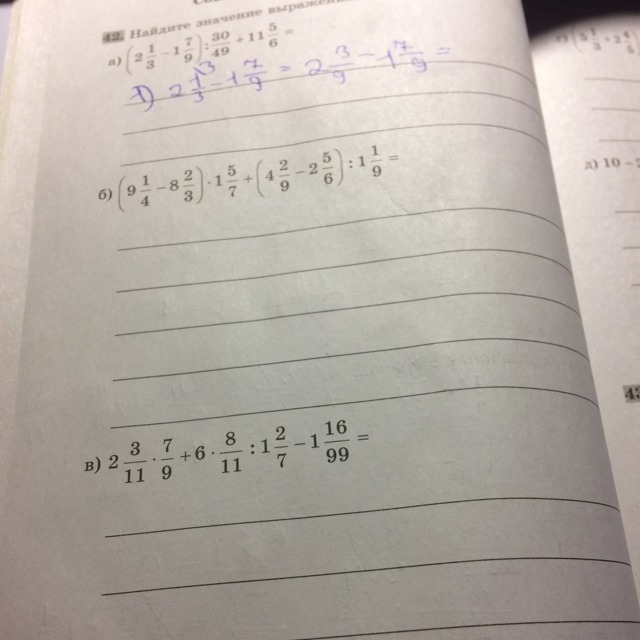 42. Найдите значение выражен
а) (2 1/3 − 1 7/9) : 30/49 + 11 5/6 =
1) 2 1/3 ³ − 1 7/9 = 2 3/9 − 1 7/9 =
б) (9 1/4 − 8 2/3) · 1 5/7 + (4 2/9 − 2 5/6) : 1 1/9 =
в) 2 3/11 · 7/9 + 6 · 8/11 : 1 2/7 − 1 16/99 =
д) 10 −